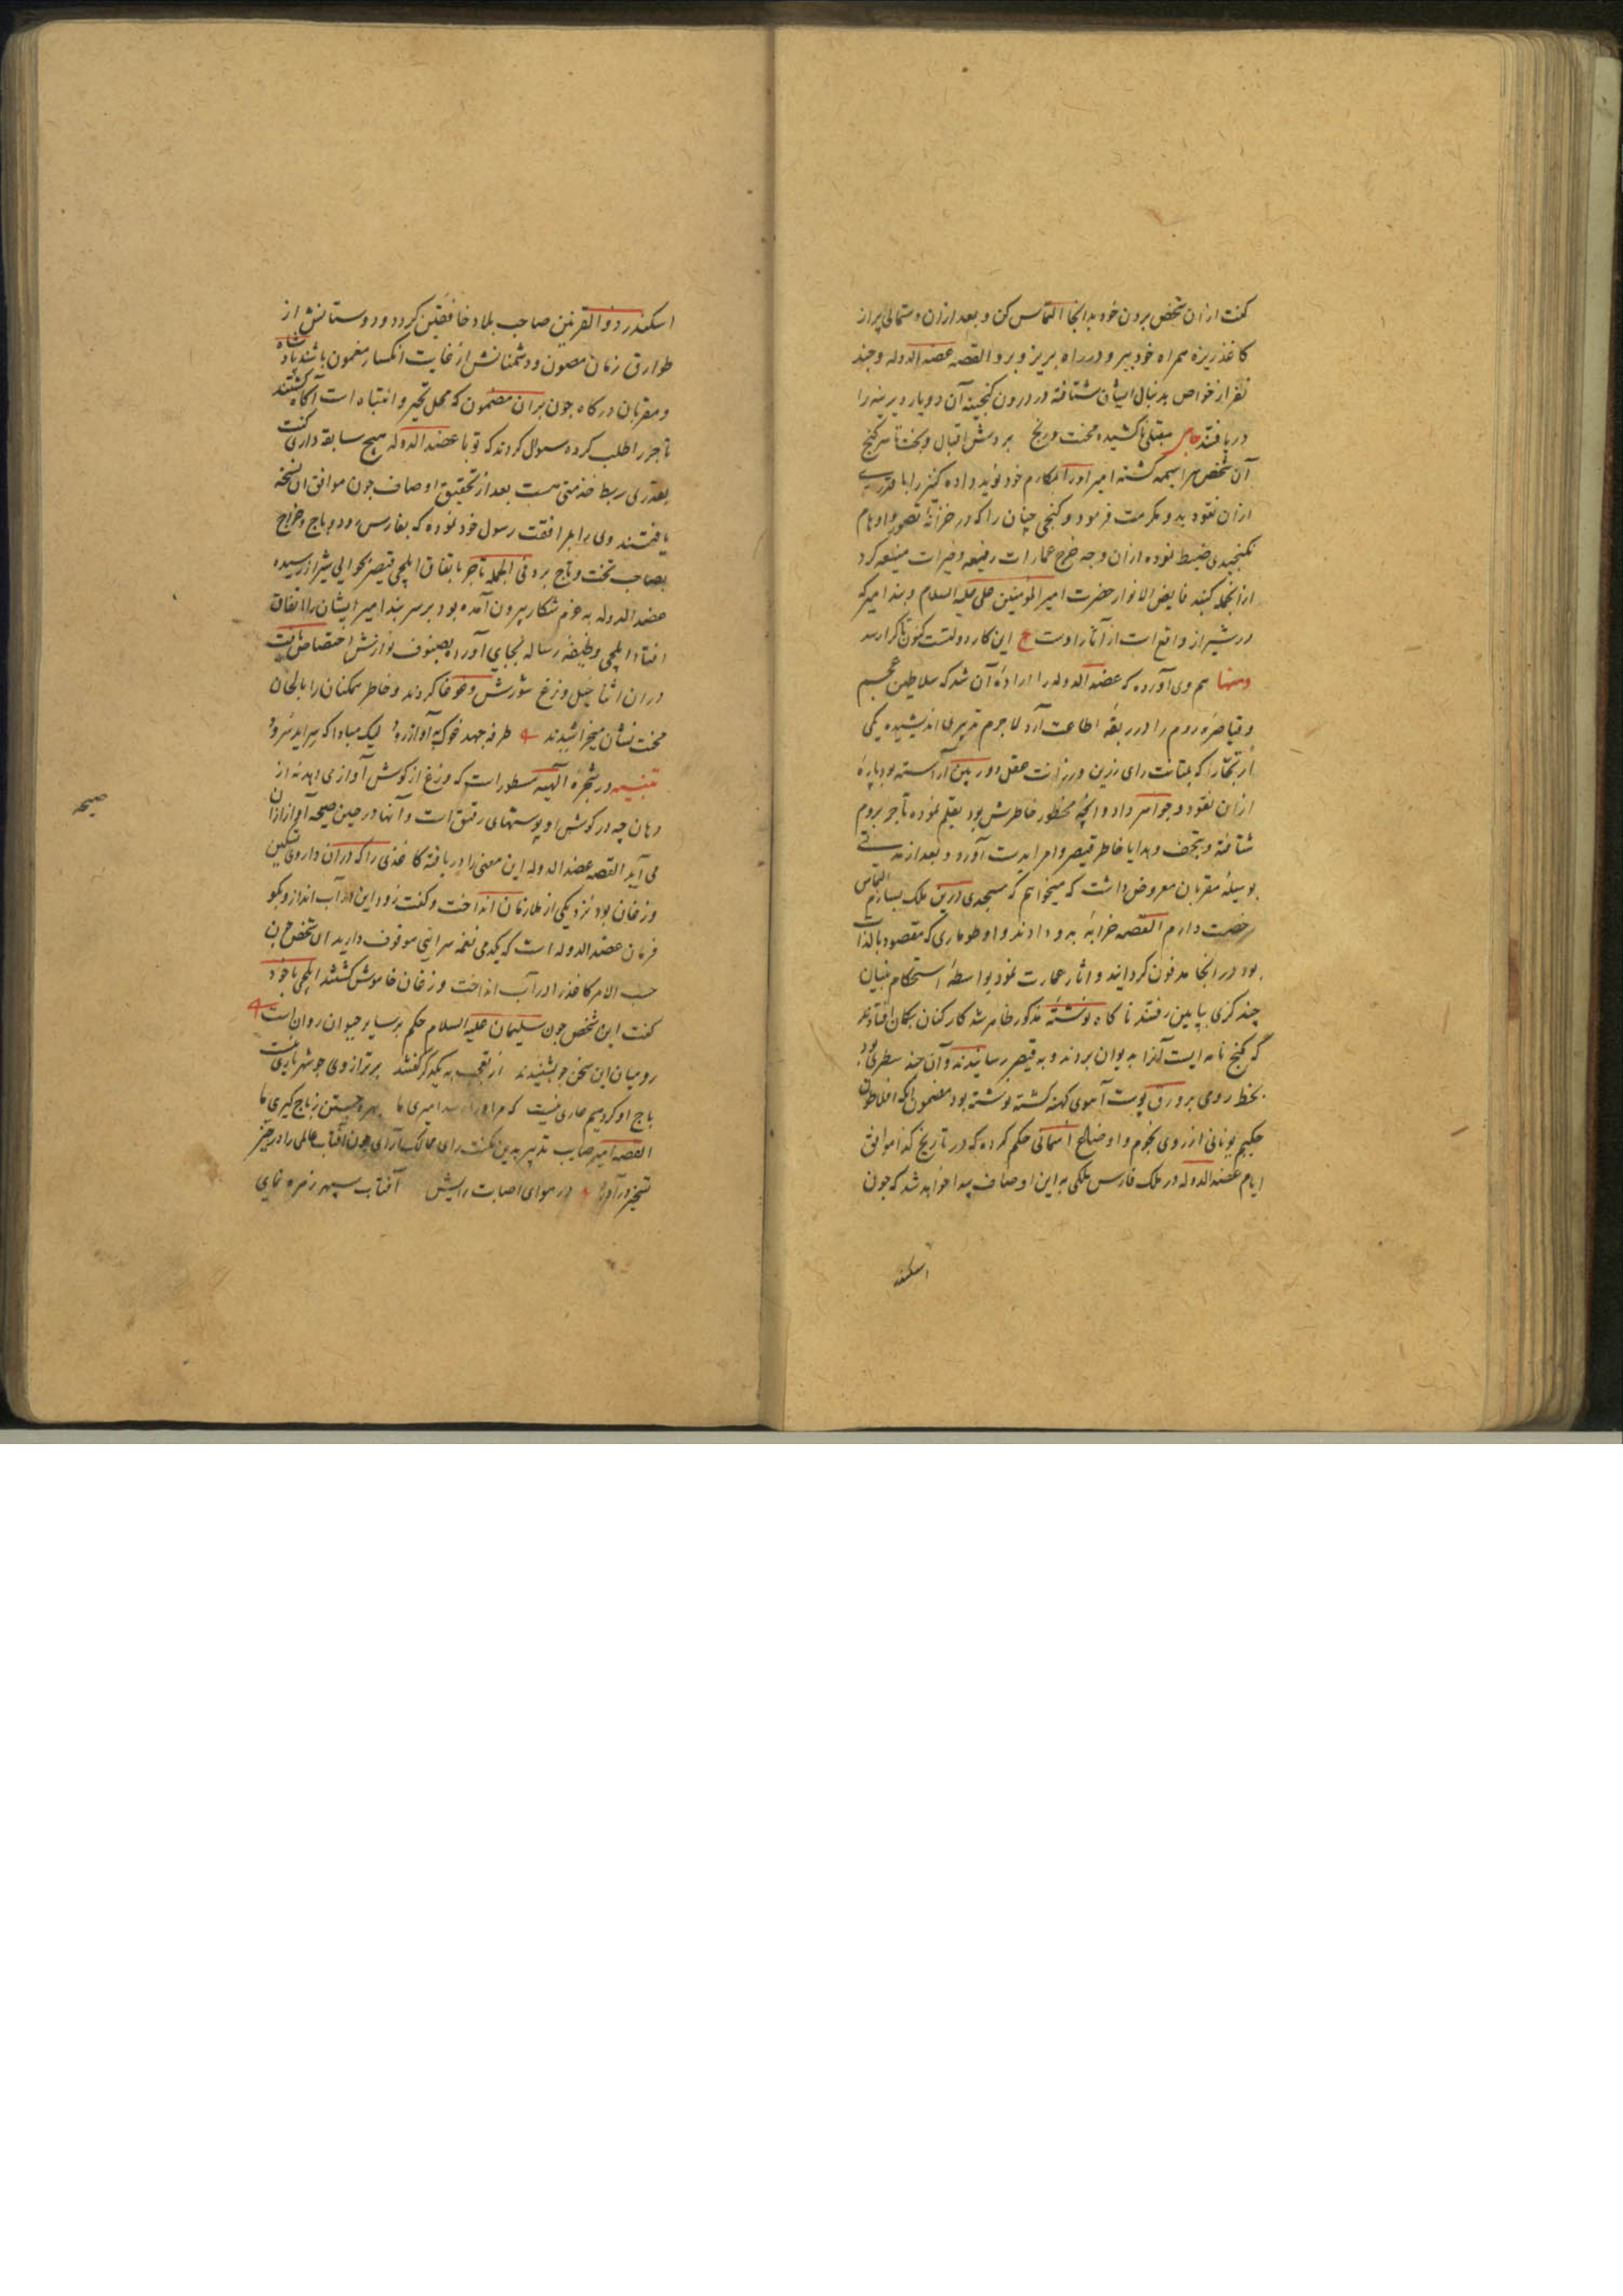 کفت ازان شخص بردن خود بدانجا التماس کن و بعد ازان دستمالی پر از
کاغذ ریزه همراه خود ببر و در راه بریز و برو القصه عضد الدوله و چند
نفر از خواص بدنبال ایشان شتافته در درون کنجینه آن دو یار دیرینه را
دریافتند مقبلی ناکشیده محنت و رنج بردش اقبال و بخت تا سر کنج
آن شخص سراسیمه کشته امیر او را بمکارم خود نوید داده کنز را با قدری
ازان نقود بدو مکرمت فرمود و کنجی چنان را که در خزانه تصور و اوهام
نکنجیدی ضبط نموده ازان وجه خرج عمارات رفیعه و خیرات منیعه کرد
ازانجمله کنبد فایض الانوار حضرت امیر المؤمنین علی علیه السلام و بند امیر که
در شیراز واقع است از آثار اوست ع این کار دولتست کنون تا کرا رسد
ومنها هم وی آورده که عضد الدوله را اراده آن شد که سلاطین عجم
و قیاصره روم را در ربقه اطاعت آرد لاجرم تدبیری اندیشیده یکی
از تجار را که بمتانت رای رزین ورزانت عقل دوربین آراسته بود پاره
ازان نقود و جواهر داد و آنچه محظور خاطرش بود تعلیم نموده تاجر بروم
شتافته و بتحف و هدایا خاطر قیصر و امرا بدست آورد و بعد از مدتی
بوسیله مقربان معروض داشت که میخواهم که مسجدی درین ملک بسازم التماس
رخصت دارم القصه خرابه بدو دادند و او طوماری که مقصود بالذات
بود در انجا مدفون کردانید و اثار عمارت نمود بواسطه استحکام بنیان
چند کزی پایین رفتند ناکاه نوشته مذکور ظاهر شد کارکنان بکمان افتادند
که کنج نامه ایست آنرا بدیوان بردند و به قیصر رسانیدند و آن چند سطری بود
بخط رومی بر ورق پوست آهوی کهنه کشته نوشته بود مضمون آنکه افلاطون
حکیم یونانی از روی نجوم و اوضاع آسمانی حکم کرده که در تاریخ کذا موافق
ایام عضد الدوله در ملک فارس ملکی به این اوصاف پیدا خواهد شد که چون
اسکندر
اسکندر ذو القرنین صاحب بلاد خافقین کردد و دوستانش از
طوارق زمان مصون و دشمنانش از غایت انکسار مغمون باشند پادشاه
و مقربان درکاه چون بران مضمون که محل تحیر و انتباه است آکاه کشتند
تاجر را طلب کرده سوال کردند که تو با عضد الدوله هیچ سابقه داری کفت
بقدری ربط خدمتی هست بعد از تحقیق اوصاف چون موافق آن نسخه
یافتند وی را بمرافقت رسول خود نموده که بفارس رود و باج و خراج
بصاحب تخت و تاج برد فی الجمله تاجر باتفاق ایلچی قیصر بحوالی شیراز رسیده
عضد الدوله به عزم شکار بیرون آمده بود بر سر بند امیر ایشان را اتفاق
افتاد ایلچی وظیفه رساله بجای آورد بصنوف نوازش اختصاص یافت
دران اثنا خیل وزغ شورش و غوغا کردند و خاطر ممکنان را بالحان
محنت نشان میخراشیدند طرفه جهد غوک به آواز رود لیک مبادا که سراید سرود
تنبیه در شجره الهیه مسطور است که وزغ از کوش آواز می دهد نه از
دهان چه در کوش او پوستهای رقیق است و آنها در حین صیحه آواز ازان
می آید القصه عضد الدوله این معنی را دریافته کاغذی را که دران داروی تسکین
وزغان بود نزد یکی از ملازمان انداخت و کفت زود این در آب انداز و بکو
فرمان عضد الدوله است که یکدمی نغمه سرایی موقوف دارید آن شخص
حسب الامر کاغذ را در آب انداخت وزغان خاموش کشتند ایلچی با خود
کفت این شخص چون سلیمان علیه السلام حکم بر سایر حیوان روان است
رومیان این سخن چو بشنیدند از تعجب به یکدکر کفتند بر ترازوی جو شهریاری نیست
باج او کر دهیم عاری نیست که مر او را امیری ما بهره جستن ز باج کیری ما
القصه امیر صایب تدبیر بدین مکنت رای ممالک آرای چون آفتاب عالمی را در حیز
تسخیر درآورد در هوای اصابت رایش آفتاب سپهر زهره نمای
صیحه